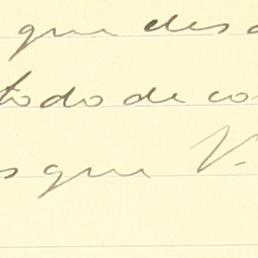 que des
todo de co
s que V.